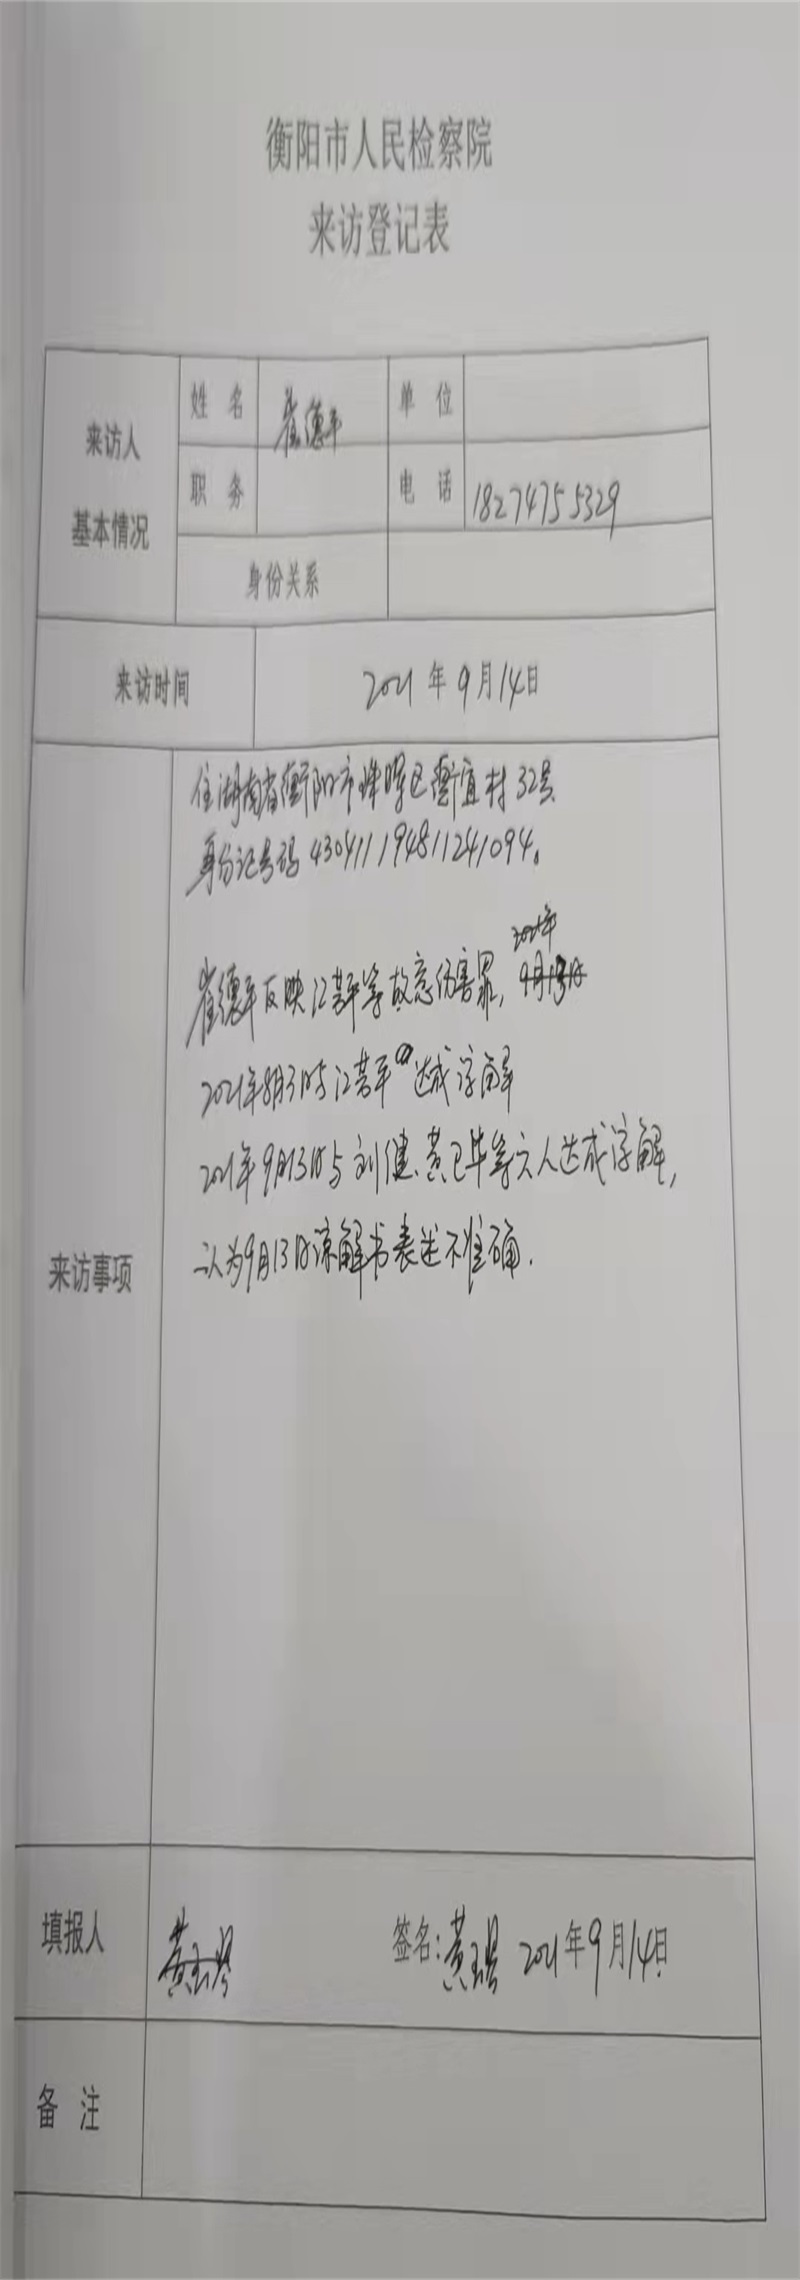 衡阳市人民检察院
来访登记表
来访人
基本情况
姓 名 崔德平 单 位
职 务 电 话 18274755329
身份关系
来访时间 2021年9月14日
来访事项
住湖南省衡阳市珠晖区 宜村32号
身份证号码430411194811241094。
2021年
崔德平反映江 平等故意伤害罪，
2021年8月3日与江 平 达成谅解
2021年9月13日与刘健、黄卫华等六人达成谅解，
认为9月13日谅解书表述不准确.
填报人 签名: 2021年9月14日
备 注